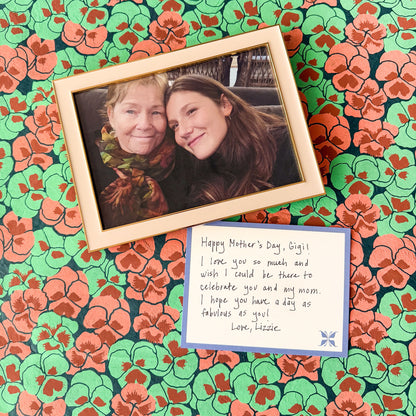 Happy Mother's Day, Gigi!
I love you so much and
wish I could be there to
celebrate you and my mom.
I hope you have a day as
fabulous as you!
Love, Lizzie